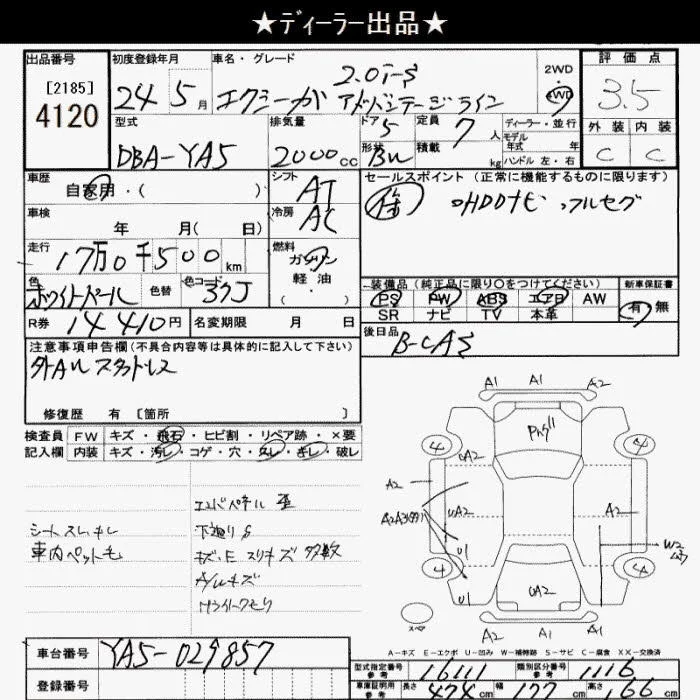 ★ディーラー出品★
出品番号
[2185]
4120
初度登録年月
24 5 月
車名・グレード
2.0i-S
エクシーガ アドバンテージライン
2WD
・
4WD
評価点
3.5
外装 内装
C C
型式
DBA-YA5
排気量
2000 cc
ドア 5
形状 BW
定員 7 人
積載 kg
ディーラー・並行
モデル年式 年
ハンドル 左・右
車歴
自家用・( )
シフト
AT
セールスポイント (正常に機能するものに限ります)
HDDナビ フルセグ
車検
年 月( 日)
冷房
AC
走行
17万0千500 km
燃料
ガソリン
軽油
色
ホワイトパール
色替
色コード
37J
装備品(純正品に限り○をつけてください)
PS PW ABS エアB AW
SR ナビ TV 本革
新車保証書
有・無
R券 14410円
名変期限 月 日
後日品
B-CAS
注意事項申告欄(不具合内容等は具体的に記入して下さい)
外AW スタッドレス
修復歴 有 [箇所 ]
検査員 FW キズ・飛石・ヒビ割・リペア跡・×要
記入欄 内装 キズ・汚レ・コゲ・穴・スレ・キレ・破レ
シートスレ、キレ
車内ペット毛
エンドパネル 歪
下廻りS
キズ・E スリキズ 多数
A/Wキズ
Hライトくもり
A1 A1 A2
4 4
A2
UA2
A2
UA2
A2
U1
W2
4 4
U1
UA2
A2 A1 A1
スペア
A-キズ E-エクボ U-凹み W-補修跡 S-サビ C-腐食 XX-交換済
車台番号 YA5-029857
登録番号
型式指定番号 参考 16111
類別区分番号 参考 1116
車庫証明用 参考 長さ 474 cm 幅 177 cm 高さ 166 cm